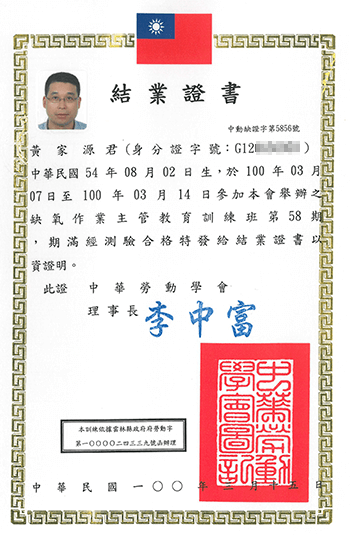 結業證書
中動缺證字第5856號
黃家源君(身分證字號:G120
中華民國54年08月02日生,於100年03月
07日至100年03月14日參加本會舉辦之
缺氧作業主管教育訓練班第58期
,期滿經測驗合格特發給結業證書以
資證明。
此證 中華勞動學會
理事長 李中富
中華勞動學會圖記
本訓練依據雲林縣政府府勞動字
第一〇〇〇〇二四三三九號函辦理
中華民國一〇〇年三月十五日